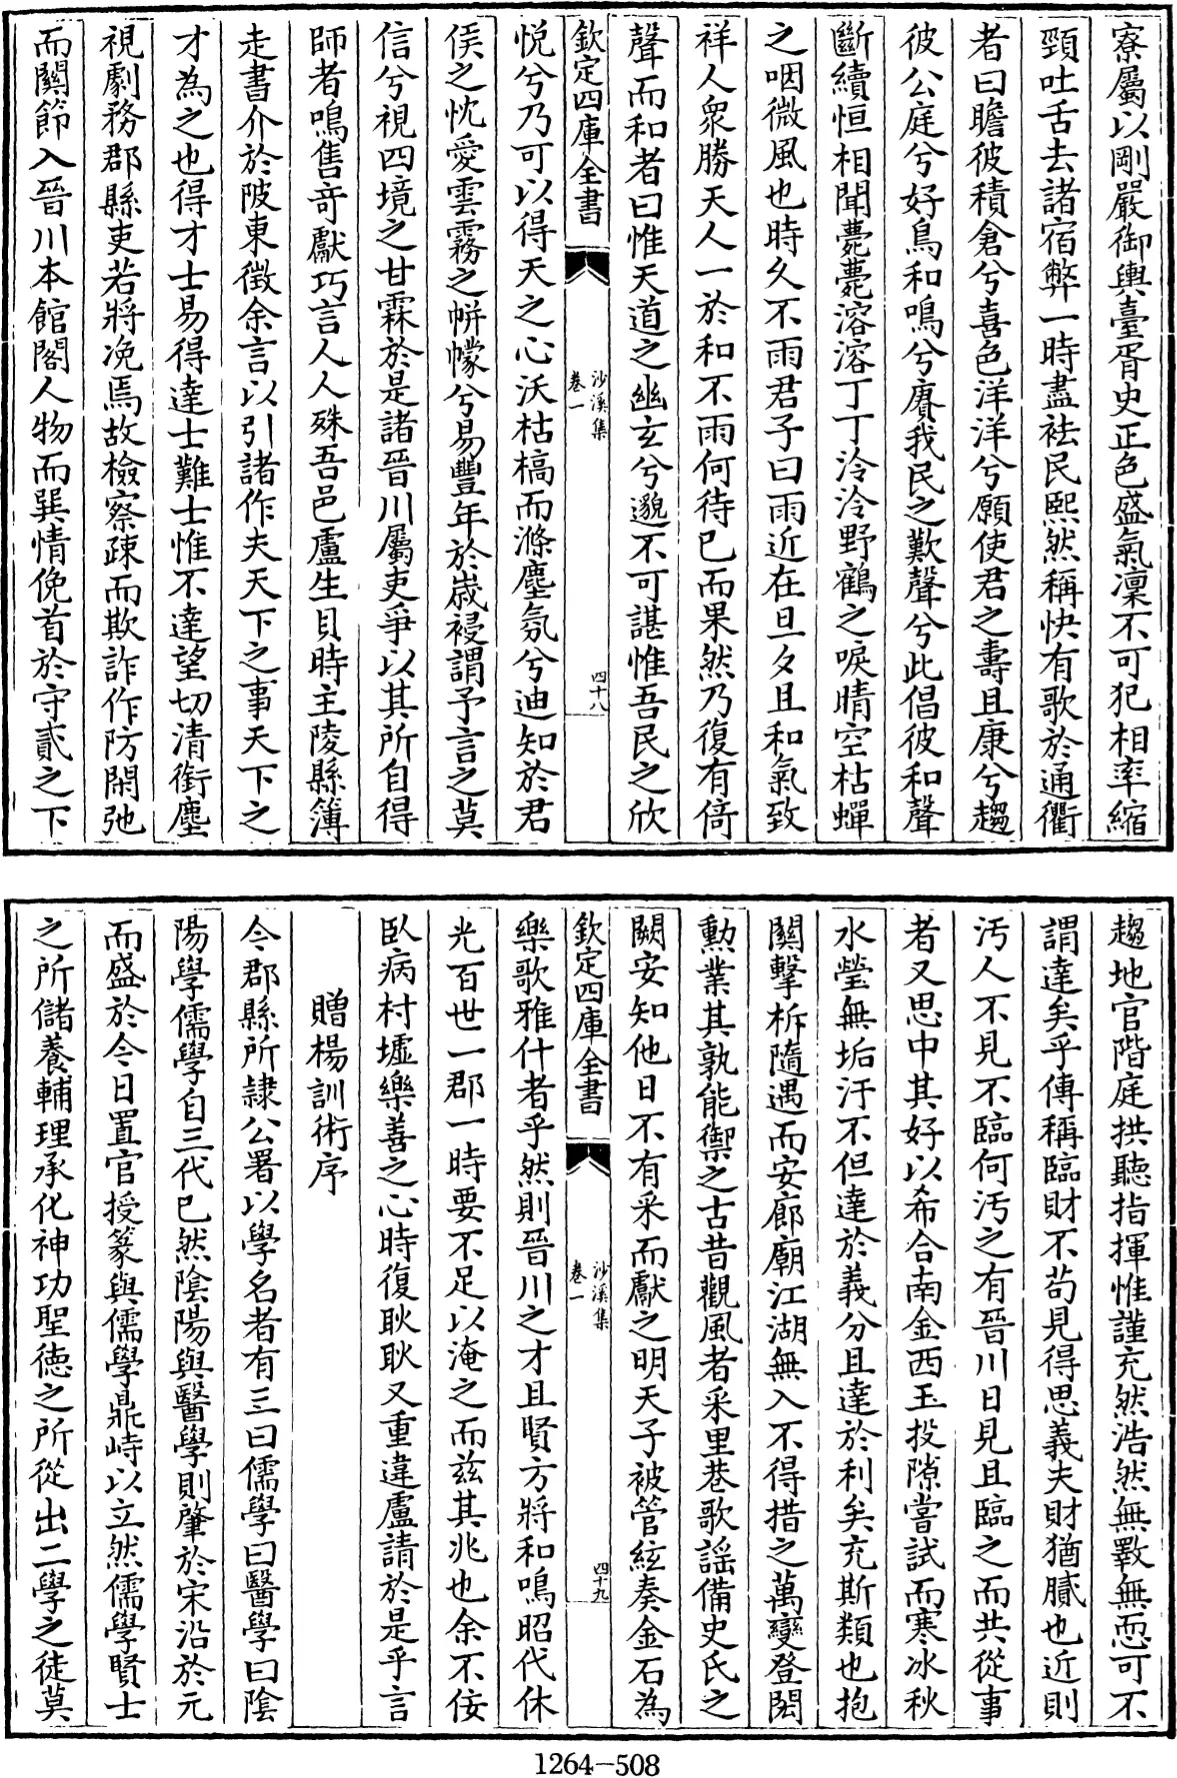 寮屬以剛嚴御輿臺胥史正色盛氣凜不可犯相率縮
頸吐舌去諸宿弊一時盡袪民熙然稱快有歌於通衢
者曰瞻彼積倉兮喜色洋洋兮願使君之壽且康兮趨
彼公庭兮好鳥和鳴兮賡我民之歎聲兮此倡彼和聲
斷續恒相聞薨薨溶溶丁丁泠泠野鶴之唳晴空枯蟬
之咽微風也時久不雨君子曰雨近在旦夕且和氣致
祥人衆勝天人一於和不雨何待已而果然乃復有倚
聲而和者曰惟天道之幽玄兮邈不可諶惟吾民之欣
欽定四庫全書
沙溪集
卷一
四十八
悅兮乃可以得天之心沃枯槁而滌塵氛兮迪知於君
侯之忱愛雲霧之帡幪兮易豐年於歲祲謂予言之莫
信兮視四境之甘霖於是諸晉川屬吏爭以其所自得
師者鳴售竒獻巧言人人殊吾邑盧生貝時主陵縣簿
走書介於陂東徵余言以引諸作夫天下之事天下之
才為之也得才士易得達士難士惟不達望切清銜塵
視劇務郡縣吏若將浼焉故檢察疎而欺詐作防閑弛
而關節入晉川本館閣人物而巽情俛首於守貳之下
趨地官階庭拱聽指揮惟謹充然浩然無斁無恧可不
謂達矣乎傳稱臨財不苟見得思義夫財猶膩也近則
汚人不見不臨何汚之有晉川日見且臨之而共從事
者又思中其好以希合南金西玉投隙嘗試而寒冰秋
水瑩無垢汙不但達於義分且達於利矣充斯類也抱
關擊柝隨遇而安廊廟江湖無入不得措之萬變登閎
勲業其孰能禦之古昔觀風者采里巷歌謡備史氏之
闕安知他日不有采而獻之明天子被管絃奏金石為
欽定四庫全書
沙溪集
卷一
四十九
樂歌雅什者乎然則晉川之才且賢方將和鳴昭代休
光百世一郡一時要不足以淹之而兹其兆也余不佞
臥病村墟樂善之心時復耿耿又重違盧請於是乎言
贈楊訓術序
今郡縣所隸公署以學名者有三曰儒學曰醫學曰隂
陽學儒學自三代已然隂陽與醫學則肇於宋沿於元
而盛於今日置官授篆與儒學鼎峙以立然儒學賢士
之所儲養輔理承化神功聖徳之所從出二學之徒莫
1264-508